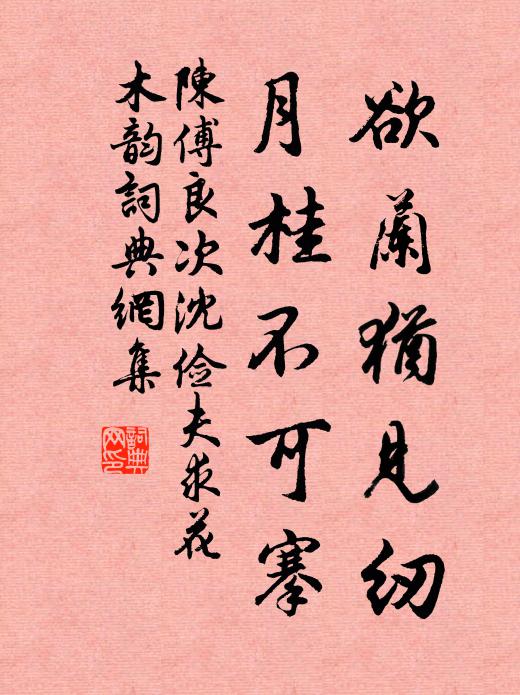 欲蘭猶見紉
月桂不可搴
陳傅良次沈俭夫求花
木韵詞典網集
詞典网印